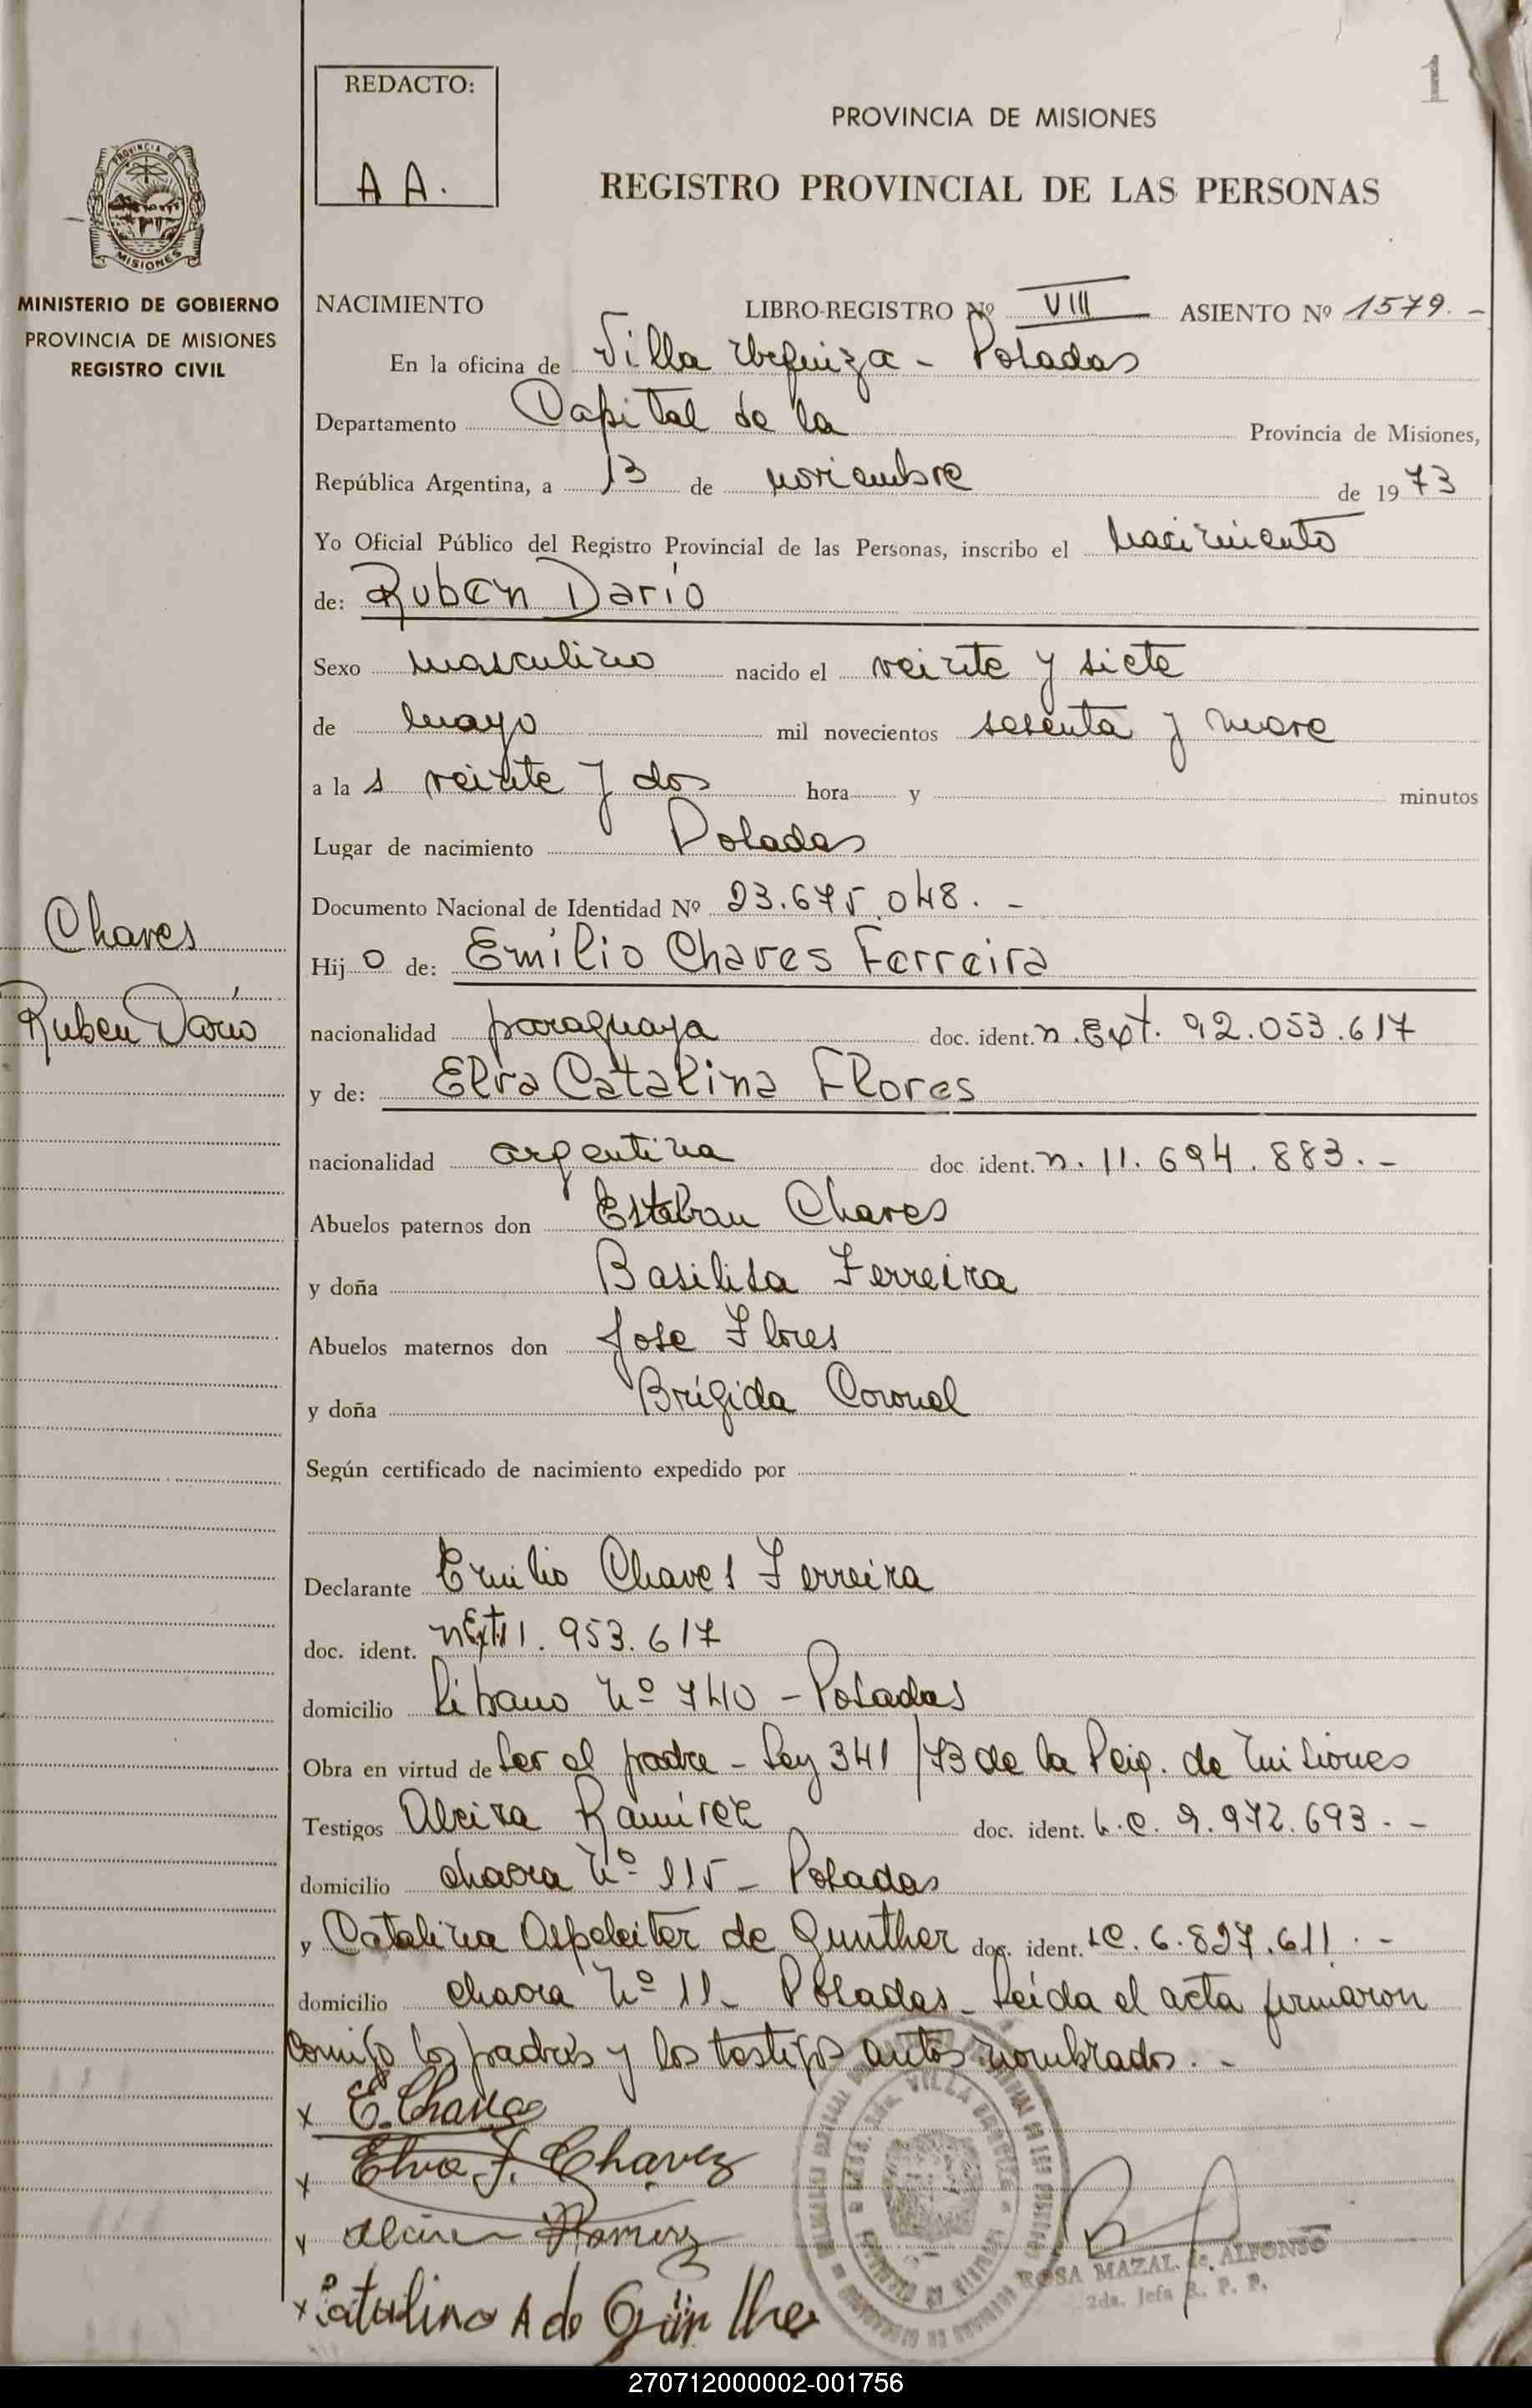 1
REDACTO:
A A.
PROVINCIA DE MISIONES
REGISTRO PROVINCIAL DE LAS PERSONAS
PROVINCIA DE
MISIONES
MINISTERIO DE GOBIERNO
PROVINCIA DE MISIONES
REGISTRO CIVIL
NACIMIENTO LIBRO-REGISTRO Nº VIII ASIENTO Nº 1579. -
En la oficina de Villa Urquiza - Posadas
Departamento Capital de la Provincia de Misiones,
República Argentina, a 13 de noviembre de 1973
Yo Oficial Público del Registro Provincial de las Personas, inscribo el nacimiento
de: Rubén Darío
Sexo masculino nacido el veinte y siete
de mayo mil novecientos sesenta y nueve
a la s veinte y dos hora y minutos
Lugar de nacimiento Posadas
Documento Nacional de Identidad Nº 23.675.048. -
Chaves
Hij o de: Emilio Chaves Ferreira
Ruben Darío
nacionalidad paraguaya doc. ident. n. Ext. 92.053.617
y de: Elva Catalina Flores
nacionalidad argentina doc. ident. n. 11.694.883. -
Abuelos paternos don Esteban Chaves
y doña Basilisa Ferreira
Abuelos maternos don Jose Flores
y doña Brígida Coronel
Según certificado de nacimiento expedido por
Declarante Emilio Chaves Ferreira
doc. ident. n Ext. 1.953.617
domicilio Líbano Nº 740 - Posadas
Obra en virtud de ser el padre - Ley 341/73 de la Pcia. de Misiones
Testigos Alcira Ramírez doc. ident. L.C. 9.972.693. -
domicilio chacra Nº 115 - Posadas
y Catalina Aspeleiter de Gunther doc. ident. LC. 6.827.611. -
domicilio chacra Nº 11 - Posadas - Leída el acta firmaron
conmigo los padres y los testigos antes nombrados. -
x E. Chaves
x Elva F. Chavez
x Alcira Ramirez
x Catalina A de Günther
ROSA MAZAL de ALFONSO
2da. Jefa R. P. P.
270712000002-001756